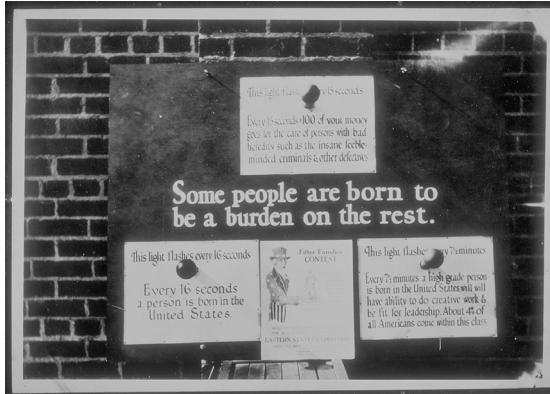 This light flashes every 15 seconds
Every 15 seconds $100 of your money
goes for the care of persons with bad
heredity such as the insane feeble-
minded criminals & other defectives
Some people are born to
be a burden on the rest.
This light flashes every 16 seconds
Every 16 seconds
a person is born in the
United States.
Fitter Families
CONTEST
EASTERN STATES EXPOSITION
This light flashes every 7½ minutes
Every 7½ minutes a high grade person
is born in the United States who will
have ability to do creative work &
be fit for leadership. About 4% of
all Americans come within this class.